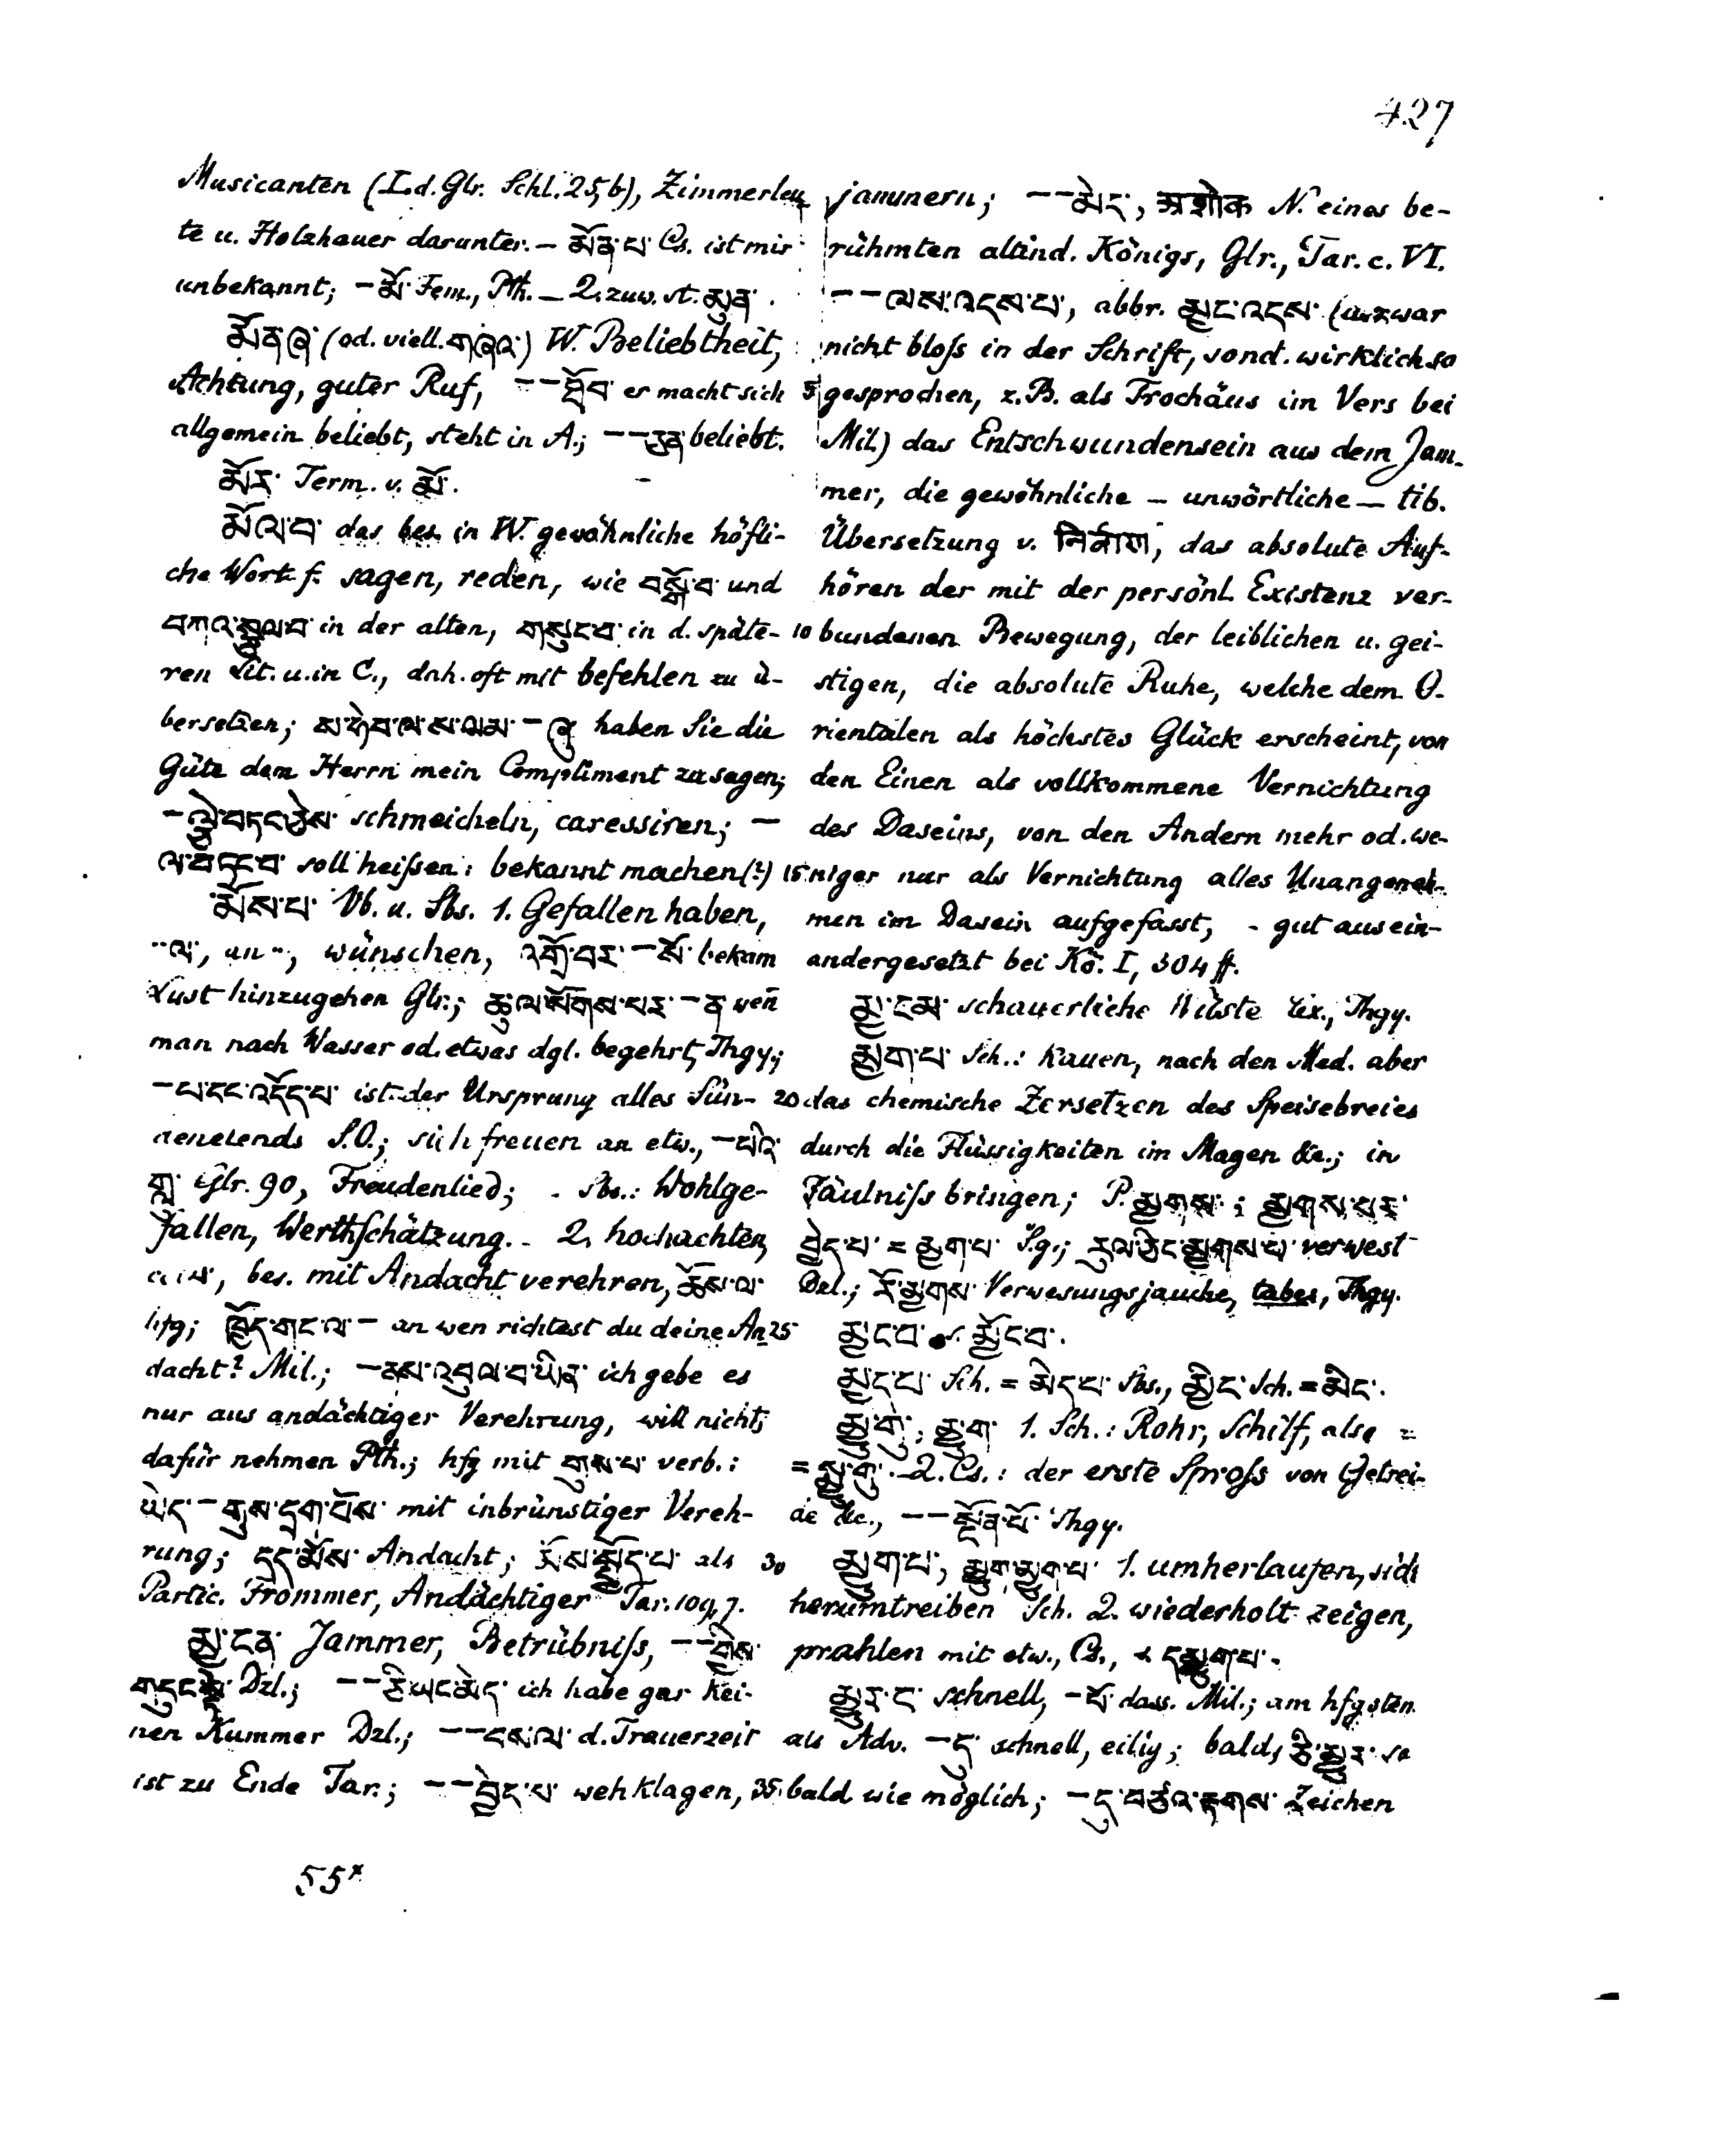 427
Musicanten (Ld. Glr. Schl. 25,b), Zimmerleu-
te u. Holzhauer darunter. – མོན་པ་ Cs. ist mir
unbekannt; – མོ་ Fem., Pth. – 2. zuw. st. མུན་.
མོན་ཞུ་ (od. viell. གཞུའ་) W. Beliebtheit,
Achtung, guter Ruf, – – er macht sich
allgemein beliebt, steht in A.; – – ཅན་ beliebt.
མོར་ Term. v. མོ་.
མོལ་བ་ das bes. in W. gewöhnliche höfli-
che Wort f. sagen, reden, wie བསྒོ་བ་ und
བཀའ་སྩལ་བ་ in der alten, གསུང་བ་ in d. späte-
ren Lit. u. in C., dah. oft mit befehlen zu ü-
bersetzen; ས་ཧེབ་ལ་ས་ལམ་ – ཞུ haben Sie die
Güte dem Herrn mein Compliment zu sagen;
– schmeicheln, caressiren; –
soll heißen: bekannt machen (?)
མོས་པ་ Vb. u. Sbs. 1. Gefallen haben,
..ལ་, an .., wünschen, འགྲོ་བར་ – སོ་ bekam
Lust hinzugehen Glr.; ཆུ་ལ་སོགས་པར་ – ན wen̄
man nach Wasser od. etwas dgl. begehrt, Thgy.;
– པ་དང་འདོད་པ་ ist der Ursprung alles Sün-
denelends S.O.; sich freuen an etw., – པའི་
གླུ་ Glr. 90, Freudenlied; – Sbs.: Wohlge-
fallen, Werthschätzung. – 2. hochachten,
bes. mit Andacht verehren, ཆོས་ལ་
hfg; ཁྱོད་གང་ལ་ – an wen richtest du deine An-
dacht? Mil.; – ནས་འབུལ་བ་ཡིན་ ich gebe es
nur aus andächtiger Verehrung, will nichts
dafür nehmen Pth.; hfg mit གུས་པ་ verb.:
ཡིད་ – གུས་དྲག་པོས་ mit inbrünstiger Vereh-
rung; དད་མོས་ Andacht; མོས་སྤྱོད་པ་ als
Partic. Frommer, Andächtiger Tar. 109,7.
མྱ་ངན་ Jammer, Betrübniß, – – གྱིས་
གདུངས་ཏེ་ Dzl.; – – ཅི་ཡང་མེད་ ich habe gar kei-
nen Kummer Dzl.; – – དས་ལ་ d. Trauerzeit
ist zu Ende Tar.; – – བྱེད་པ་ wehklagen,
jammern; – – མེད་, अशोक N. eines be-
rühmten altind. Königs, Glr., Tar. c. VI.
– – ལས་འདས་པ་, abbr. མྱང་འདས་ (u. zwar
nicht bloß in der Schrift, sond. wirklich so
5 gesprochen, z.B. als Trochäus im Vers bei
Mil.) das Entschwundensein aus dem Jam-
mer, die gewöhnliche – unwörtliche – tib.
Übersetzung v. निर्वाण, das absolute Auf-
hören der mit der persönl. Existenz ver-
10 bundenen Bewegung, der leiblichen u. gei-
stigen, die absolute Ruhe, welche dem O-
rientalen als höchstes Glück erscheint, von
den Einen als vollkommene Vernichtung
des Daseins, von den Andern mehr od. we-
15 niger nur als Vernichtung alles Unangeneh-
men im Dasein aufgefasst, – gut ausein-
andergesetzt bei Kö. I, 304 ff.
མྱ་ངམ་ schauerliche Wüste Lex., Thgy.
མྱག་པ་ Sch.: kauen, nach den Med. aber
20 das chemische Zersetzen des Speisebreies
durch die Flüssigkeiten im Magen &c.; in
Fäulniß bringen; P. མྱགས་; མྱགས་པར་
བྱེད་པ་ = མྱག་པ་ S.g.; རུལ་ཅིང་མྱགས་པ་ verwest
Dzl.; རོ་མྱགས་ Verwesungsjauche, tabes, Thgy.
25 མྱང་བ་ s. མྱོང་བ་.
མྱད་པ་ Sch. = མེད་པ་ Sbs., མྱིང་ Sch. = མིང་.
མྱུ་གུ་, མྱུ་ག 1. Sch.: Rohr, Schilf, also =
= སྨྱུ་གུ་. – 2. Cs.: der erste Sproß von Getrei-
de &c., – – སྔོན་པོ་ Thgy.
30 མྱུག་པ་, མྱུག་མྱུག་པ་ 1. umherlaufen, sich
herumtreiben Sch. 2. wiederholt zeigen,
prahlen mit etw., Cs., དམྱུག་པ་.
མྱུར་བ་ schnell, – པོ་ dass. Mil.; am hfgsten
als Adv. – དུ་ schnell, eilig; bald, ཅི་མྱུར་ so
35 bald wie möglich; – དུ་བཙའ་རྟགས་ Zeichen
55*